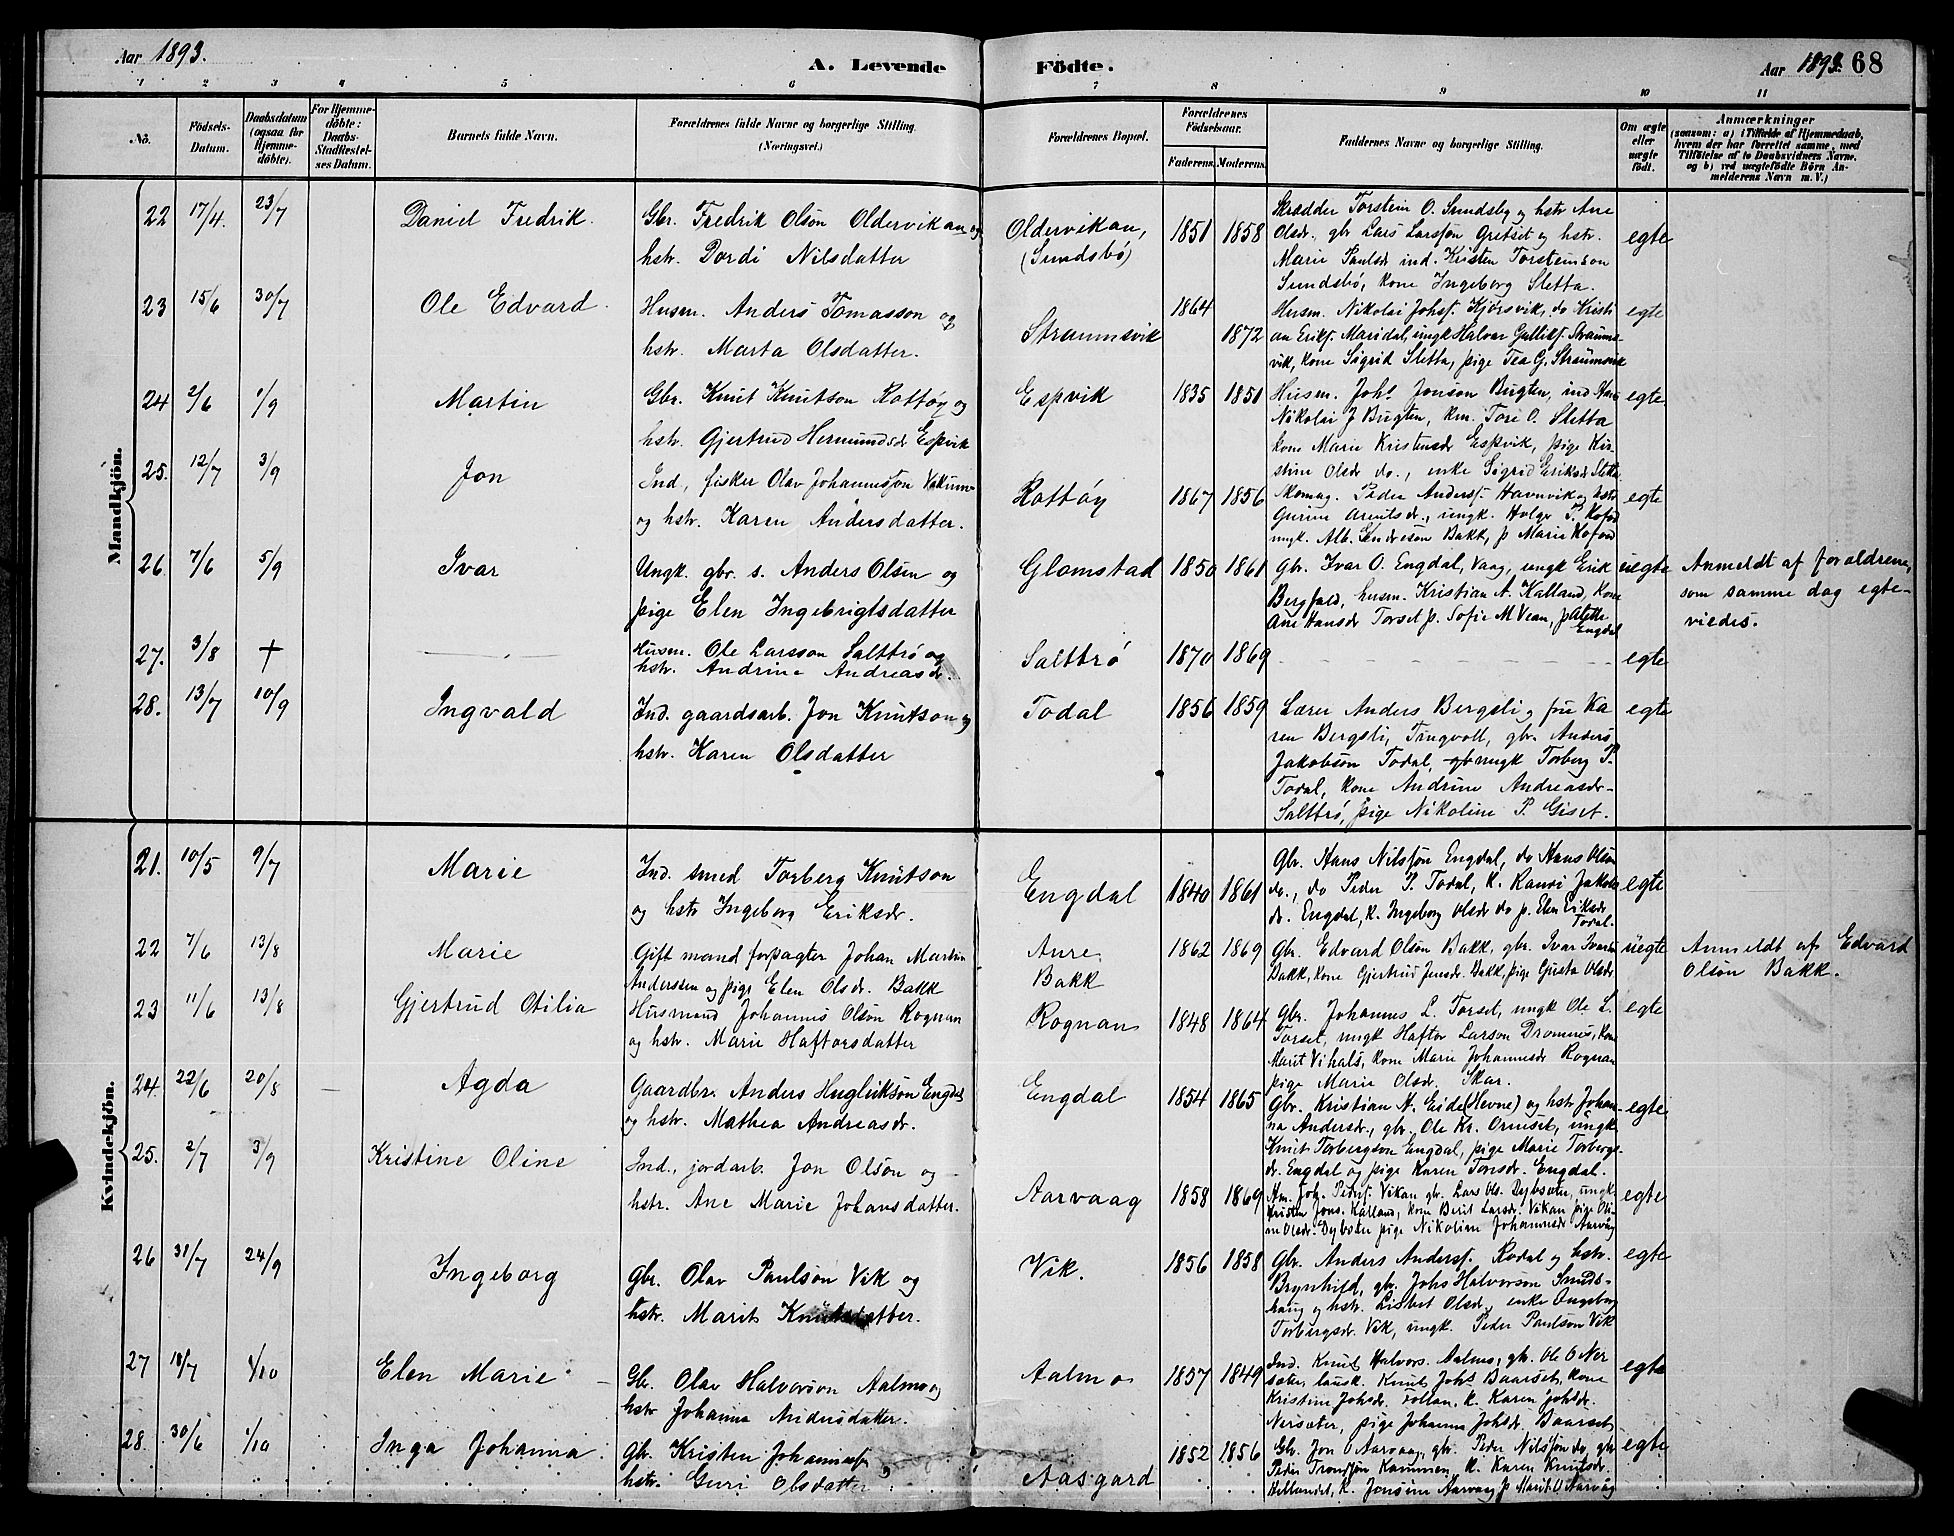 Aar 1893.
A. Levende Födte.
Aar 1893. 68
1 2 3 4 5 6 7 8 9 10 11
No.
Födsels-Datum.
Daabsdatum (ogsaa for Hjemme-döbte).
For Hjemme-döbte: Daabs-Stadfæstel-ses Datum.
Barnets fulde Navn.
Forældrenes fulde Navne og borgerlige Stilling. (Næringsvei.)
Forældrenes Bopæl.
Forældrenes Födselsaar.
Faderens. Moderens.
Faddernes Navne og borgerlige Stilling.
Om ægte eller uægte födt.
Anmærkninger
(saasom: a) i Tilfælde af Hjemmedaab, hvem der har forrettet samme, med Tilföielse af to Daabsvidners Navne, og b) ved uægtefödte Börn An-melderens Navn m. V.)
Mandkjön.
22 17/4. 23/7 Daniel Fredrik. Gbr. Fredrik Olson Oldervikan og
hstr. Dordi Nilsdatter
Oldervikan, (Sundsbö) 1851 1858
Skrædder Torstein O. Sundsby og hstr Ane
Olsdr. gbr Lars Larsson Gretset og hstr.
Marie Paulsdr ind. Kristen Torsteinson
Sundsbö, kone Ingeborg Sletta.
egte
23 15/6 30/7 Ole Edvard. Husm. Anders Tomasson og
hstr. Marta Olsdatter.
Straumsvik 1864 1872
Husm. Nikolai Johsf. Kjörsvik, do Kristi
an Eriksf. Maridal, ungk Halvar Gulliksf. Straums-
vik, kone Sigrid Sletta, pige Tea G. Straumsvik
egte
24 2/6 1/9 Martin Gbr. Knut Knutson Rottöy og
hstr. Gjertrud Hermundsdr Espvik
Espvik 1835 1851
Husm. Johs Jonson Bugten, ind Hans
Nikolai J Bugten, km. Tore O. Sletta
kone Marie Kristensdr Espvik, pige Kir-
stine Olsdr do., enke Sigrid Eriksdr Sletta
egte
25. 12/7 3/9 Jon Ind, fisker Olav Johannesson
og hstr. Karen Andersdatter.
Rottöy 1867 1856
Skomag. Peder Andersf. Havnvik og hstr
Gurine Arntsdr., ungk. Holge P. Kofod
ungk. Alb. Endreson Bakk, p Marie Kofod
egte
26. 7/6 5/9 Ivar Ungk. gbr. s. Anders Olsen og
pige Elen Ingebrigtsdatter
Glomstad 1850 1861
Gbr. Ivar O. Engdal, Vaag, ungk Erik
Bergfald, husm. Kristian A. Kalland, kone
Ane Hansdr Torset p. Sofie M Vean, p Aletta
Engdal
uegte
Anmeldt af foraldrene,
som samme dag egte-
viedes.
27. 3/8 + Husm. Ole Larsson Saltbrö og
hstr. Andrine Andreasdr.
Saltbrö 1870 1869 egte
28. 13/7 10/9 Ingvald Ind. gaardsarb. Jon Knutson og
hstr. Karen Olsdatter
Todal 1856 1859
Lærer Anders Bergsli og fru Ka
ren Bergsli, Tingvoll, gbr. Anders
Jakobson Todal, ungk Torberg P.
Todal, kone Andrine Andreasdr-
Saltbrö, pige Nikoline P. Giset.
egte
Kvindekjön.
21. 10/5 9/7 Marie Ind. smed Torberg Knutson
og hstr Ingeborg Eriksdr.
Engdal 1840 1861
Gbr. Hans Nilsson Engdal, do Hans Olson
do., do Peder P. Todal, k. Randi Jakobs
dr. Engdal, k. Ingeborg Olsdr do p. Elen Eriksdr
Todal.
egte
22 7/6 13/8 Marie Gift mand forpagter Johan Martin
Anderssen og pige Elen Olsdr. Bakk
Aure. Bakk 1862 1869
Gbr. Edvard Olson Bakk, gbr. Ivar Ivarson
Bakk, kone Gjertrud Jensdr. Bakk, pige Gusta Olsdr
uegte
Anmeldt af Edvard
Olsön Bakk.
23 11/6 13/8 Gjertrud Otilia Husmand Johannes Olson Rognan
og hstr. Marie Haftorsdatter
Rognan 1848 1864
Gbr. Johannes L. Torset, ungk Ole L.
Torset, ungk Haftor Larson Dromnes, kone
Marit Vihals, kone Marie Johannesdr Rognan
pige Marie Olsdr. Skar.
egte
24. 22/6 20/8 Agda Gaardbr. Anders Hugleikson Engdal
og hstr. Mathea Andreasdr.
Engdal 1854 1865
Gbr. Kristian N. Eide (Hevne) og hstr Johan-
na Andersdr., gbr. Ole Kr. Ormset, ungk
Knut Torbergson Engdal, pige Marie Torbergs-
dr. Engdal og pige Karen Tonsdr. Engdal.
egte
25. 2/7 3/9 Kristine Oline Ind., jordarb. Jon Olson og
hstr. Ane Marie Johansdatter.
Aarvaag 1858 1869
Hm. Joh. Pedersf. Vikan gbr. Lars Ols. Dybsæter, ungk
Kristen Jons. Kalland, kone Berit Larsdr. Vikan pige Oli-
ne Olsdr. Dybsæter pige Nikoline Johannesdr Aarvåg
egte
26 31/7 24/9 Ingeborg Gbr. Olav Paulson Vik og
hstr. Marit Knutsdatter.
Vik. 1856 1858
Gbr. Anders Andersf. Rodal og hstr.
Brynhild, gbr. Johs Halvorson Sunds-
haug og hstr. Lisbet Olsdr., enke Ingeborg
Torbergsdr. Vik, ungk. Peder Paulson Vik
egte
27 18/7 1/10 Elen Marie Gb. Olav Halvorson Aalmo og
hstr Johanna Andersdatter.
Aalmo 1857 1849
Ind. Knut Halvors. Aalmo, gb. Ole O Ner
sæter, lausk. Knut Johs Baarset, kone
Kristine Johsdr. Follan, k. Karen Johsdr.
Nersæter, pige Johanna Johsdr. Baarset,
egte
28. 30/6 1/10 Inga Johanna Gb. Kristen Johannesf
hstr. Guri Olsdatter
Aasgard 1852 1856
Gb. Jon O Aarvaag, gb. Peder Nilsson do, gb
Peder Trondson Kammen, k. Karen Knutsdr.
Hellandet, k. Jonsine Aarvaag p Marit O Aarvåg
egte